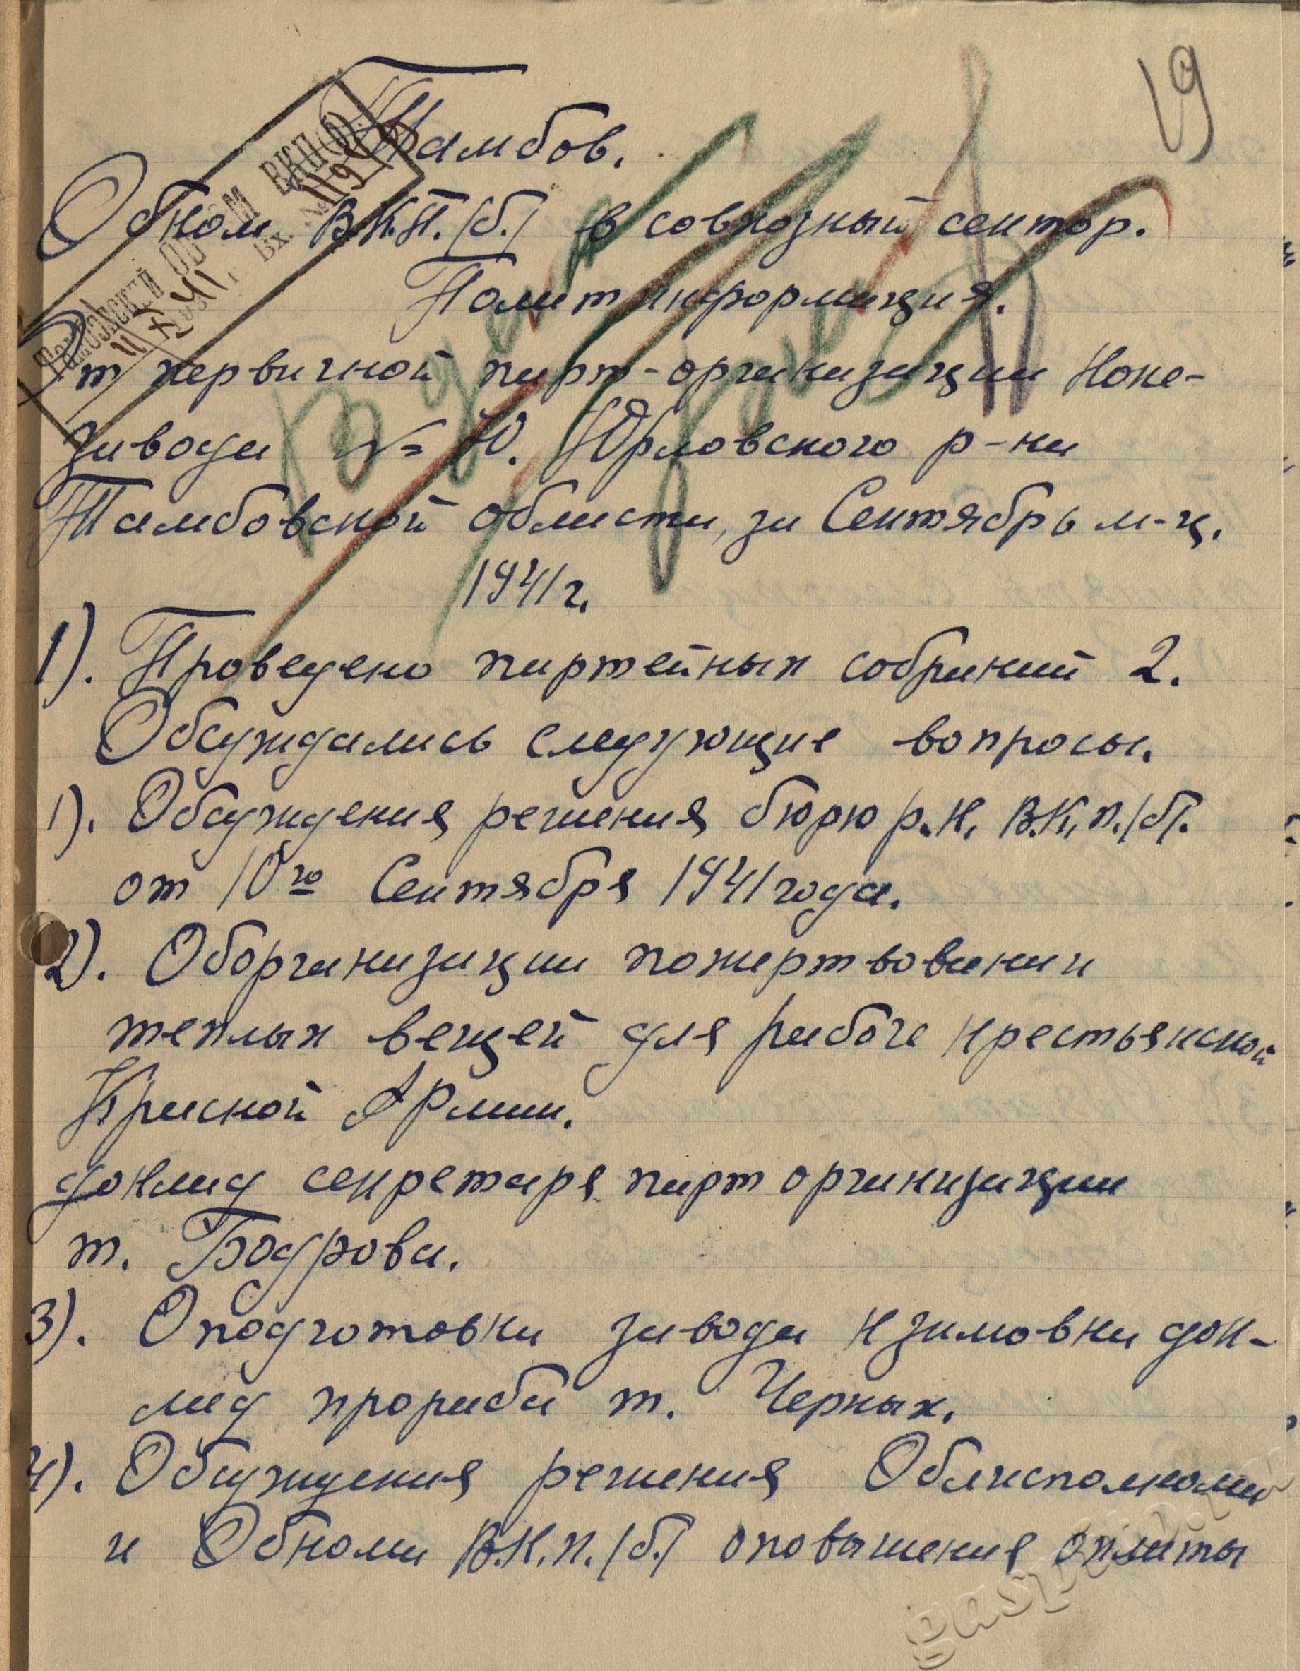 19
Тамбов.
Обком В.К.П./б./ в совхозный сектор.
Политинформация.
От первичной парт-организации Коне-
завода № 10. Юрловского р-на
Тамбовской области, за Сентябрь м-ц.
1941 г.
1). Проведено партейных собраний 2.
Обсуждались следующие вопросы.
1). Обсуждения решения бюрю р.к. В.К.П./б/.
от 10го Сентября 1941 года.
2). Оборганизации пожертвовании
теплых вещей для рабоче крестьянской
Красной Армии.
доклад секретаря парт организации
т. Бодрова.
3). Оподготовки завода кзимовки док-
лад прораба т. Черных.
4). Обсуждения решения Облисполкома
и Обкома В.К.П./б./ оповышение оплаты